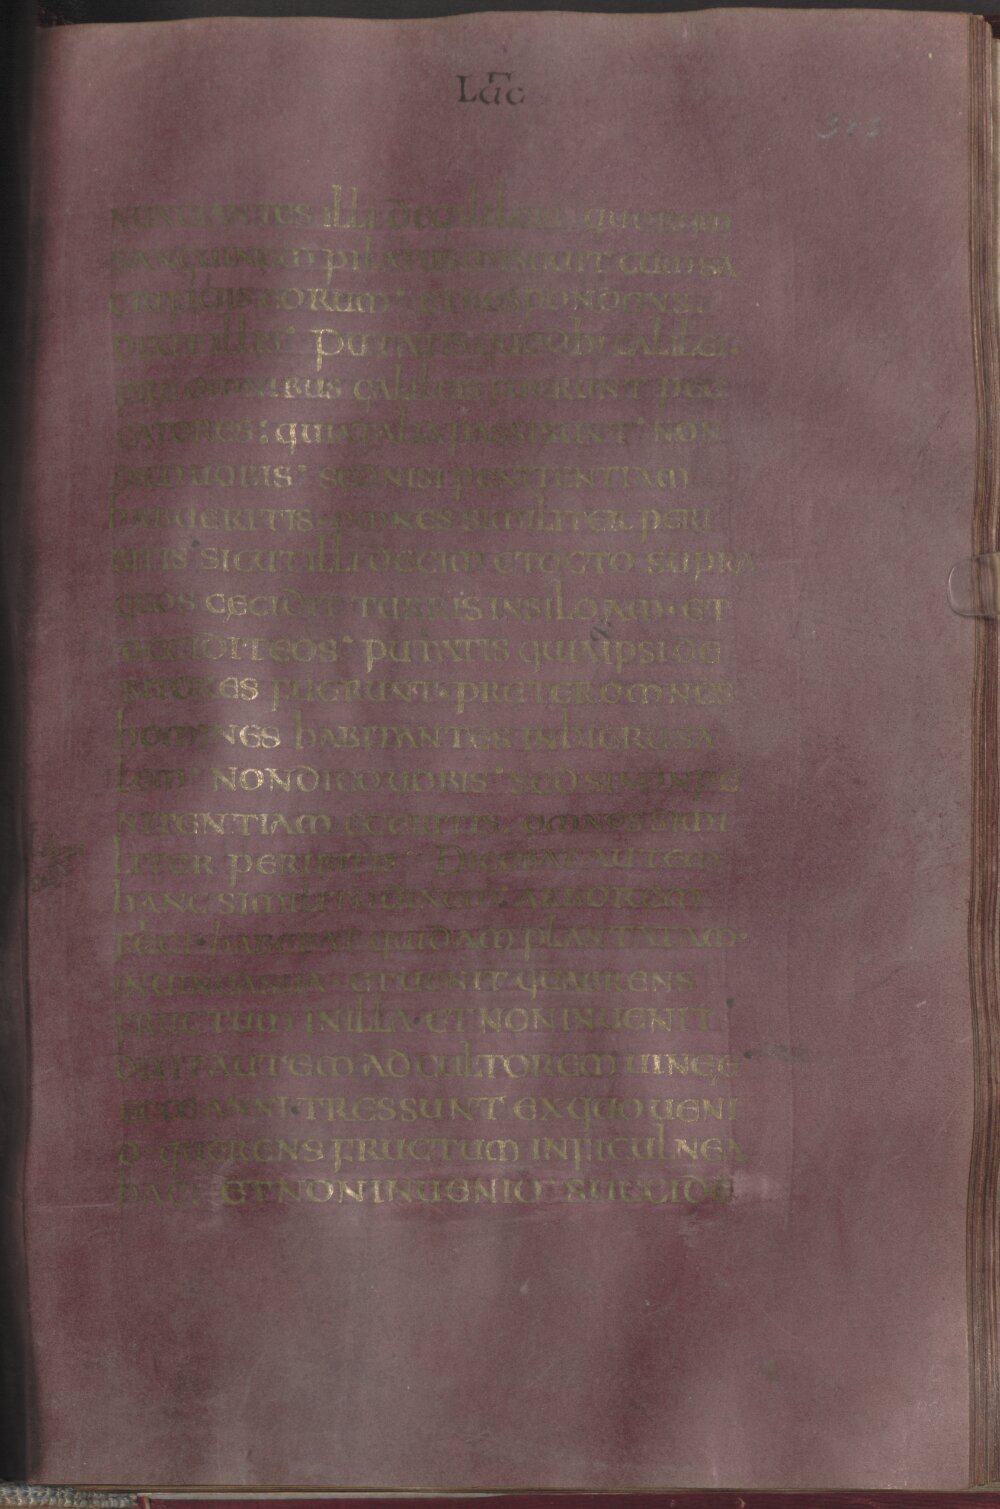 Luc
NUNTIANTES ILLI DE GALILEIS. QUORUM
SANGUINEM PILATUS MISCUIT CUM SA
CRIFICIIS EORUM. ET RESPONDENS
DIXIT ILLIS. PUTATIS QUOD HI GALILEI
PRE OMNIBUS GALILEIS FUERUNT PEC
CATORES: QUIA TALIA PASSI SUNT. NON
DICO UOBIS. SED NISI PENITENTIAM
HABUERITIS. OMNES SIMILITER PERI
BITIS. SICUT ILLI DECIM ET OCTO SUPRA
QUOS CECIDIT TURRIS IN SILOAM. ET
OCCIDIT EOS. PUTATIS QUIA IPSI DE
BITORES FUERUNT. PRETER OMNES
HOMINES HABITANTES IN HIERUSA
LEM. NON DICO UOBIS. SED SI NON PE
NITENTIAM EGERITIS. OMNES SIMI
LITER PERIBITIS. DICEBAT AUTEM
HANC SIMILITUDINEM. ARBOREM
FICI HABEBAT QUIDAM PLANTATAM.
IN UINEA SUA. ET UENIT QUAERENS
FRUCTUM IN ILLA. ET NON INUENIT
DIXIT AUTEM AD CULTOREM UINEE
ECCE ANNI. TRES SUNT EX QUO UENI
O QUERENS FRUCTUM IN FICULNEA
HAC. ET NON INUENIO SUCCIDE